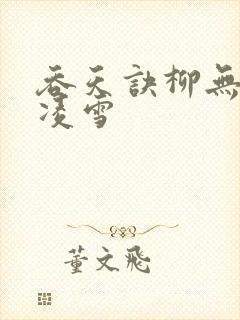 吞天訣柳無
凌雪
董文飛